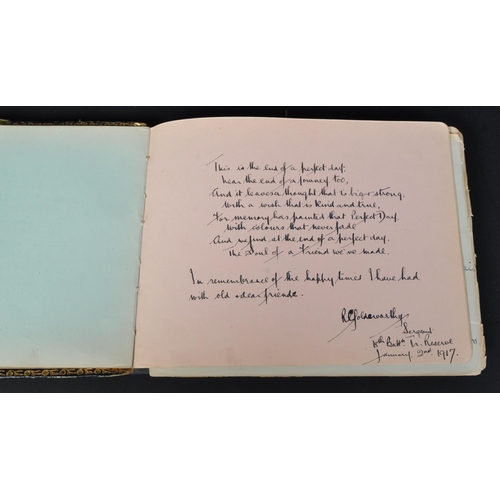 This is the end of a perfect day,
Near the end of a journey too,
And it leaves a thought that is big & strong,
With a wish that is kind and true,
For memory has painted that Perfect Day
With colours that never fade
And we find at the end of a perfect day,
The Soul of a Friend we've made.
In remembrance of the happy times I have had
with old & dear friends.
Goldsworthy
Sergant
Battn Tr. Reserve
January 2nd 1917.